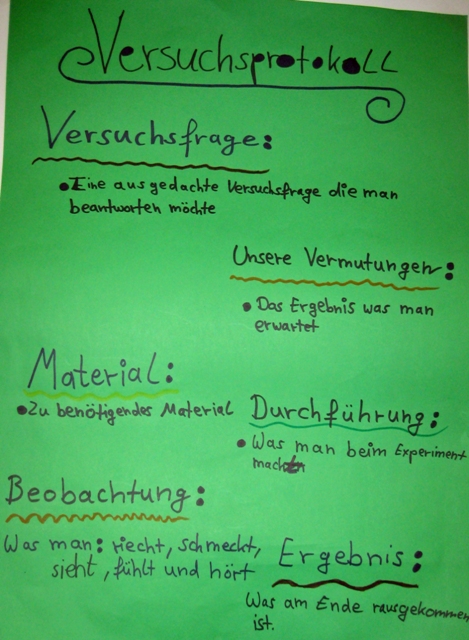 Versuchsprotokoll
Versuchsfrage:
• Eine ausgedachte Versuchsfrage die man
beantworten möchte
Unsere Vermutungen:
• Das Ergebnis was man
erwartet
Material:
• Zu benötigendes Material
Durchführung:
• Was man beim Experiment
macht
Beobachtung:
Was man: riecht, schmeckt,
sieht, fühlt und hört
Ergebnis:
Was am Ende rausgekommen
ist.